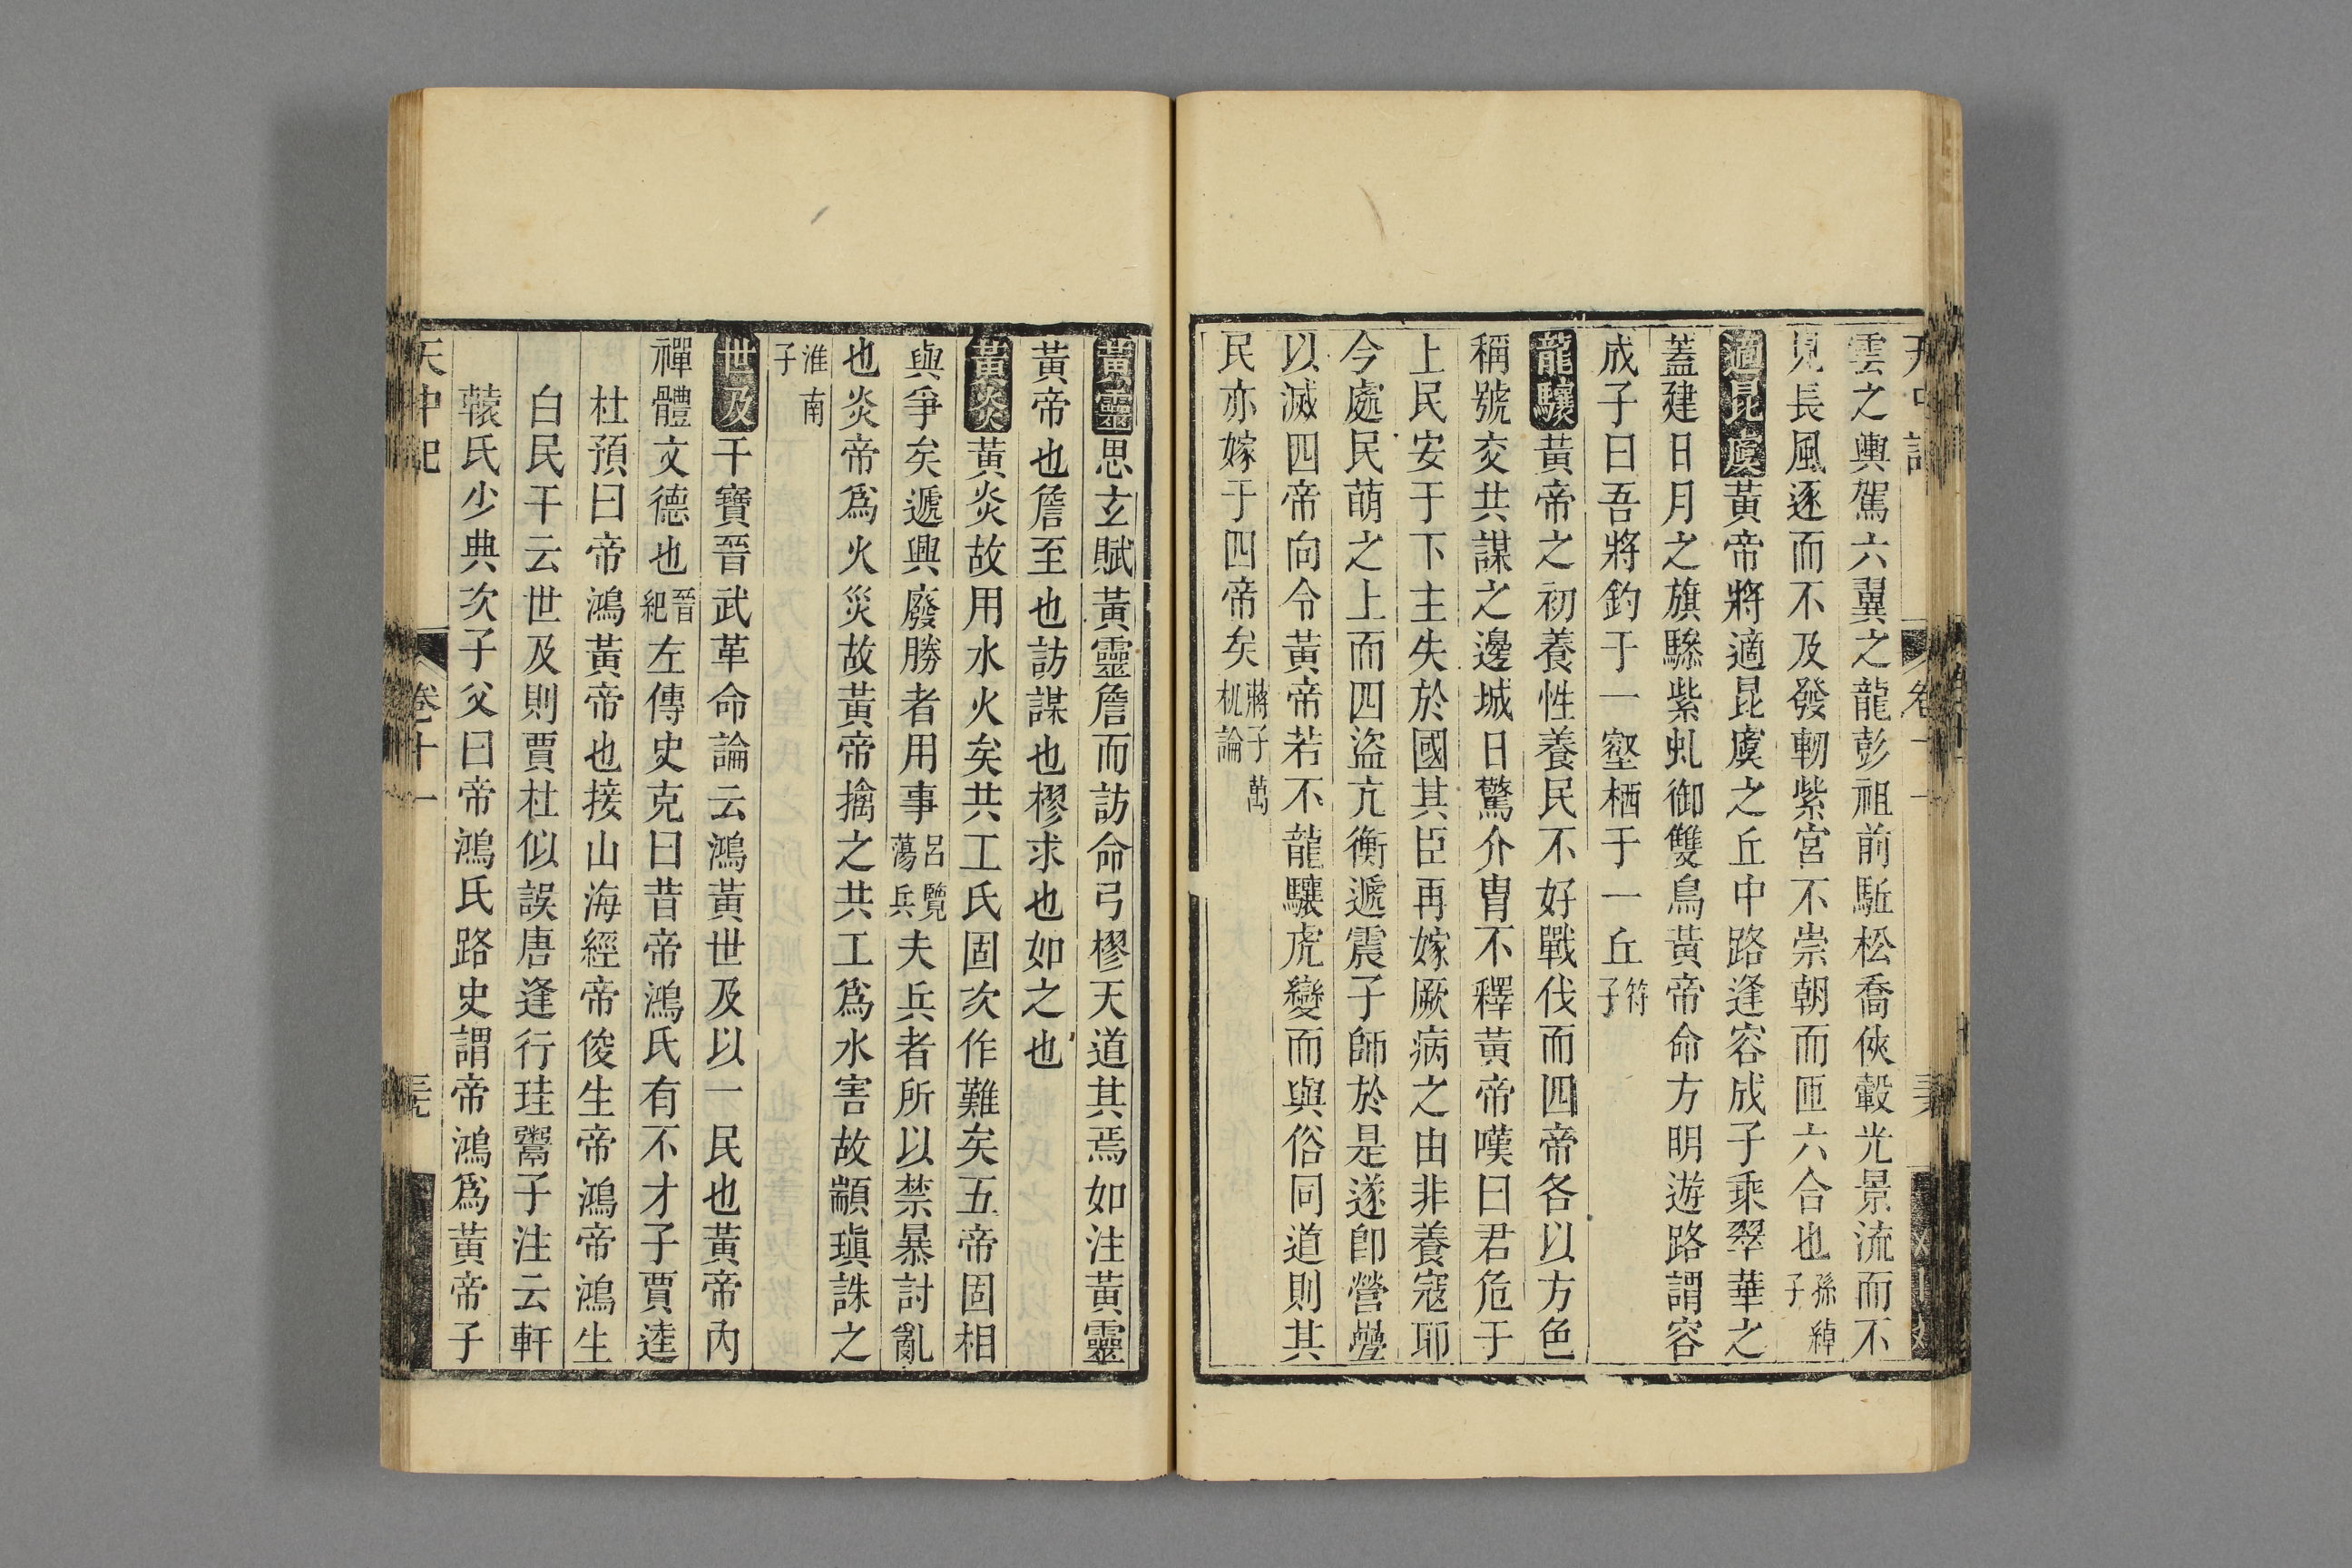 天中記
卷十一
雲之輿駕六翼之龍彭祖前駈松喬俠轂光景流而不
見長風逐而不及發軔紫宮不崇朝而匝六合也孫綽子
適昆虞黃帝將適昆虞之丘中路逢容成子乘翠華之
蓋建日月之旗驂紫虬御雙鳥黃帝命方明遊路謂容
成子曰吾將釣于一壑栖于一丘符子
龍驤黃帝之初養性養民不好戰伐而四帝各以方色
稱號交共謀之邊城日驚介胄不釋黃帝嘆曰君危于
上民安于下主失於國其臣再嫁厥病之由非養寇耶
今處民萌之上而四盜亢衡遞震子師於是遂卽營壘
以滅四帝向令黃帝若不龍驤虎變而與俗同道則其
民亦嫁于四帝矣蔣子萬机論
黃靈思玄賦黃靈詹而訪命弓樛天道其焉如注黃靈
黃帝也詹至也訪謀也樛求也如之也
黃炎黃炎故用水火矣共工氏固次作難矣五帝固相
與爭矣遞興廢勝者用事呂覽蕩兵夫兵者所以禁暴討亂
也炎帝爲火災故黃帝擒之共工爲水害故顓瑱誅之
淮南子
世及干寶晉武革命論云鴻黃世及以一民也黃帝內
禪體文德也晉紀左傳史克曰昔帝鴻氏有不才子賈逵
杜預曰帝鴻黃帝也接山海經帝俊生帝鴻帝鴻生
白民干云世及則賈杜似誤唐逢行珪鬻子注云軒
轅氏少典次子父曰帝鴻氏路史謂帝鴻爲黃帝子
天中記
卷十一